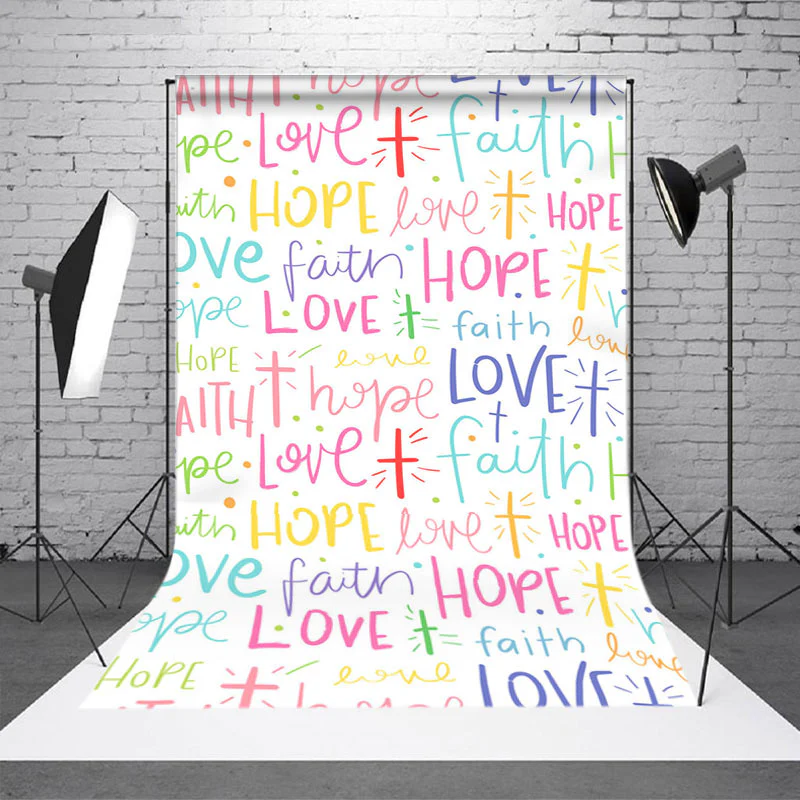 AITH hope LOVE
pe LOVE faith H
aith HOPE love HOPE
ove faith HOPE
ope LOVE faith love
HOPE love
AITH hope LOVE
pe LOVE faith H
aith HOPE love HOPE
ove faith HOPE
ope LOVE faith love
HOPE love
hope LOVE